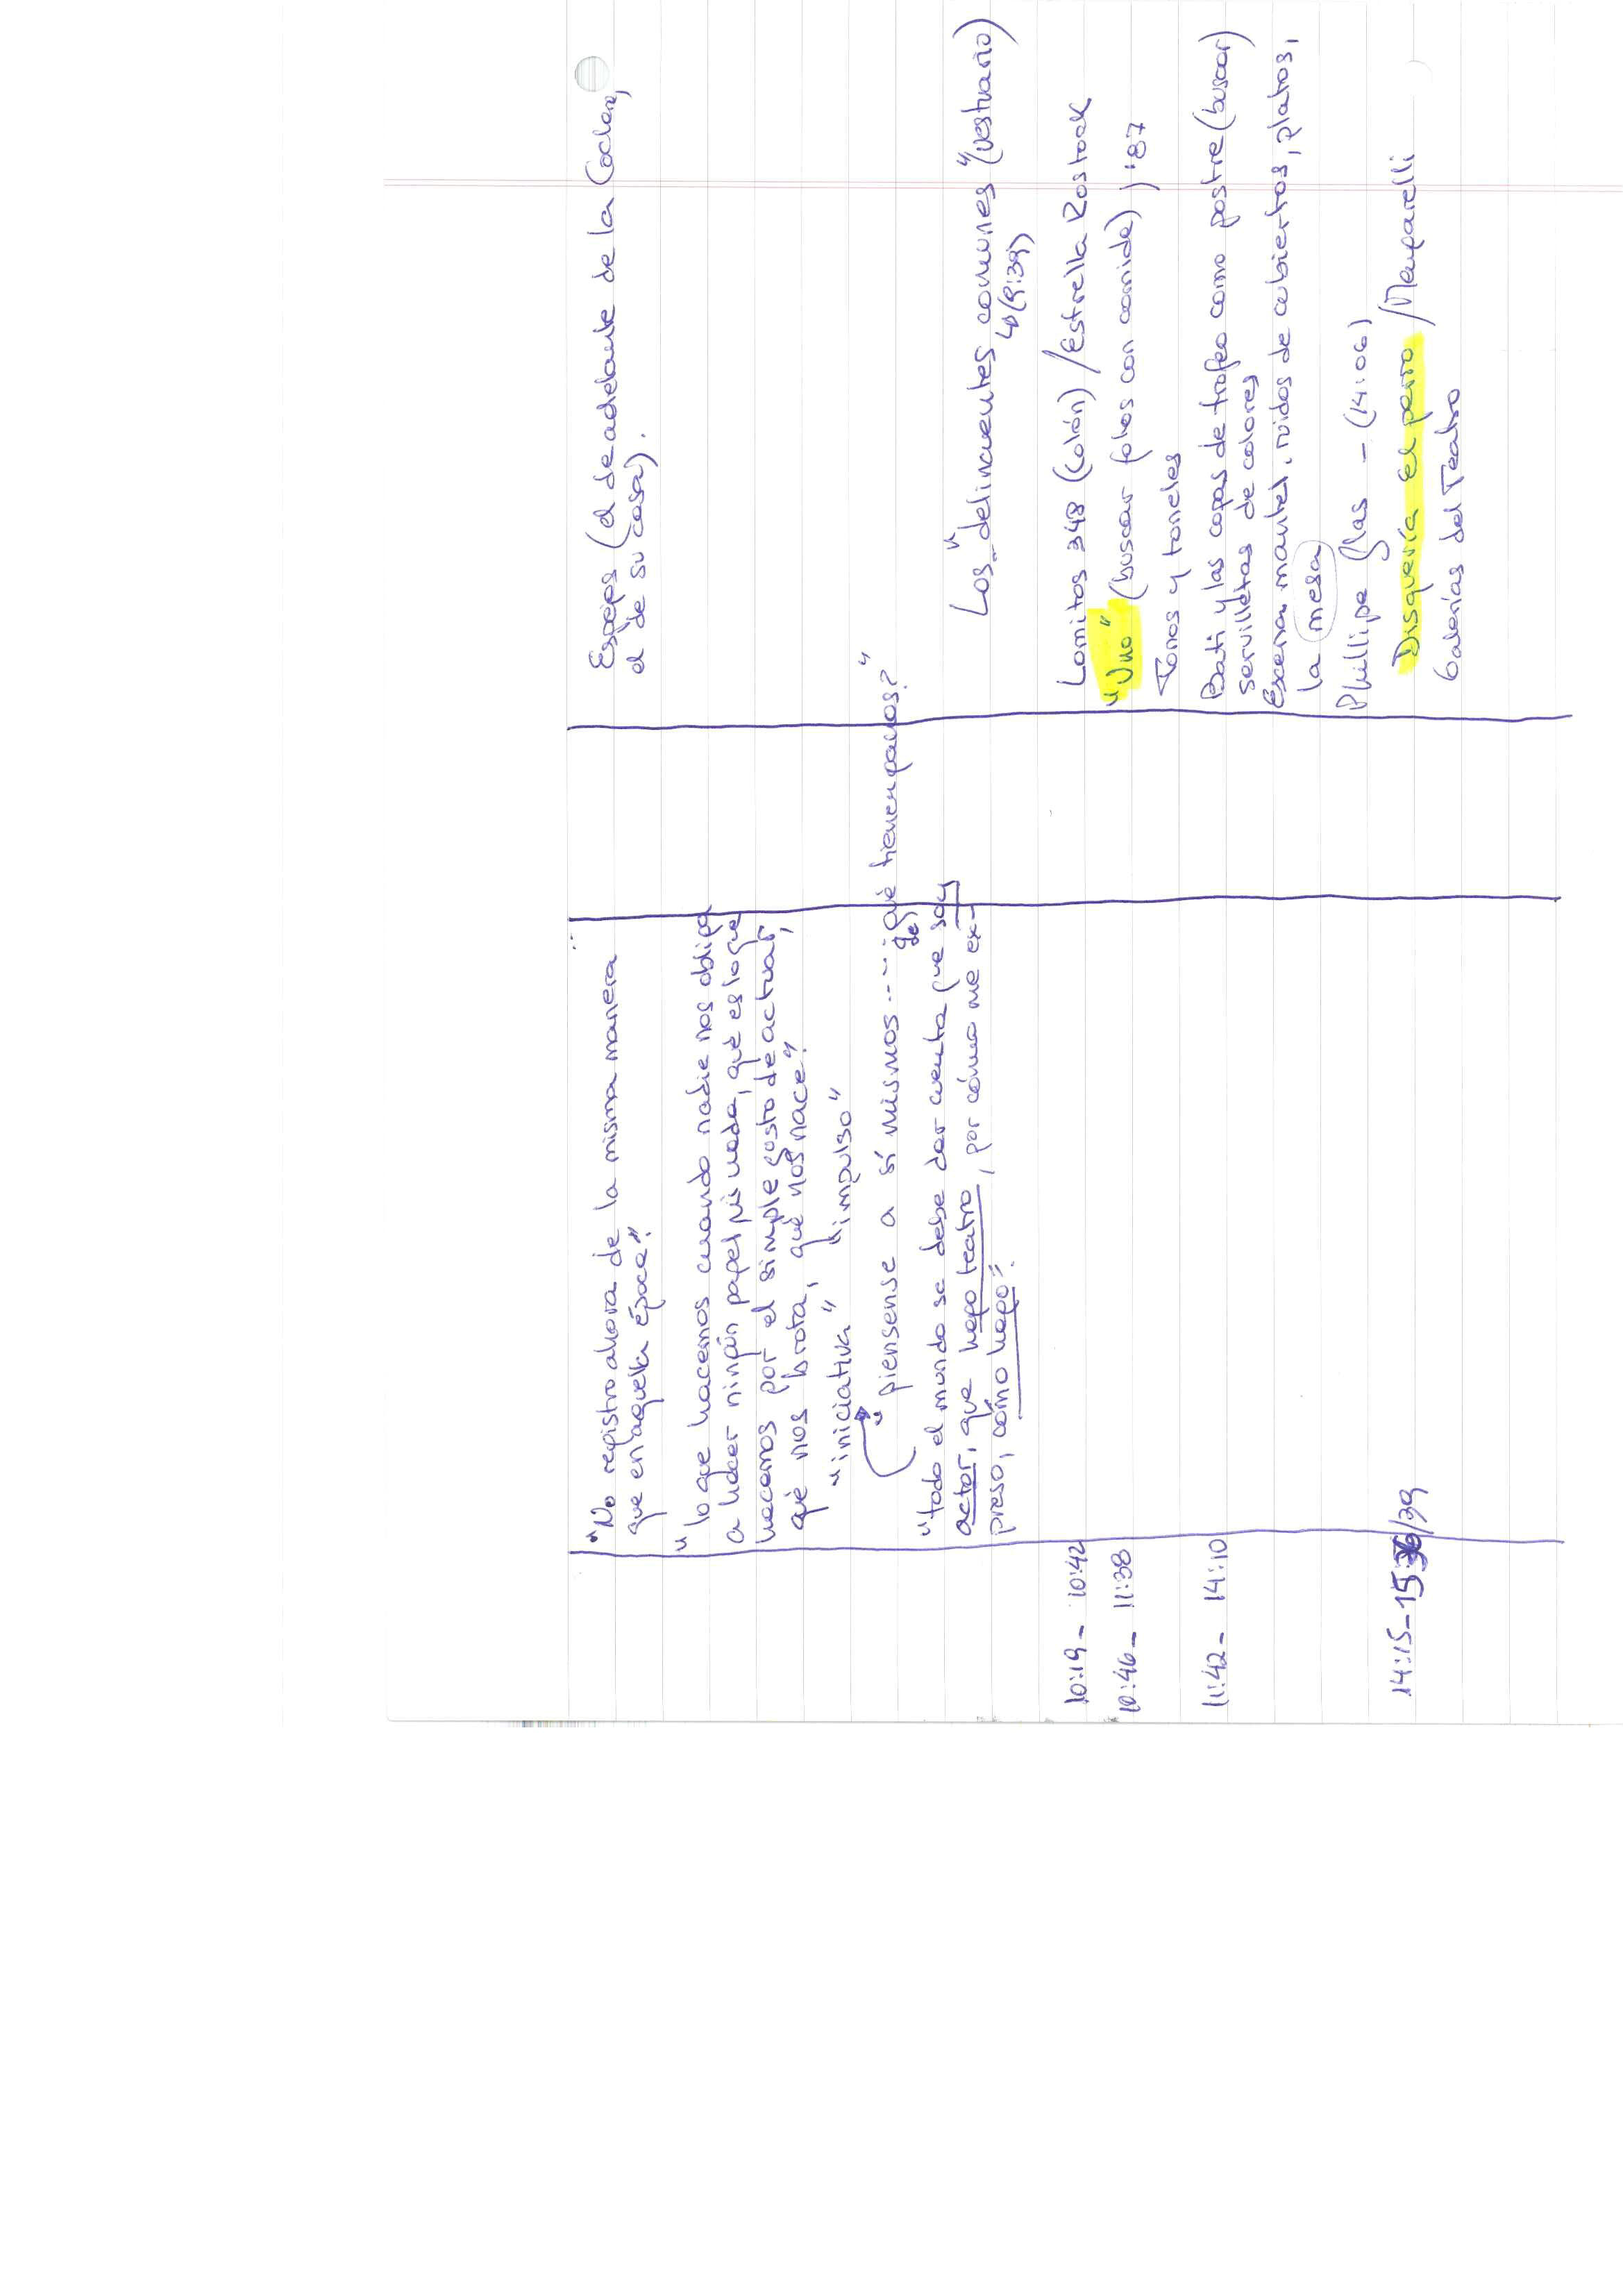 "No registro ahora de la misma manera
que en aquella época"
"lo que hacemos cuando nadie nos obliga
a hacer ningún papel ni nada, qué es lo que
hacemos por el simple gusto de actuar,
qué nos brota, qué nos nace"
"iniciativa" "impulso"
"piensense a sí mismos.... ¿qué tienen para dos?"
"todo el mundo se debe dar cuenta que soy
actor, que hago teatro, por cómo me ex-
preso, cómo hago".
10:19 - 10:42
10:46 - 11:38
11:42 - 14:10
14:15 - 15:36/39
Espejos (el de adelante de la Cochera,
el de su casa).
Los "delincuentes comunes" (vestuario)
(9:39)
Lomitos 348 (Colón) / Estrella Rostock
"Uno" (buscar fotos con comida) '87
Tonos y toneles
Bati y las copas de trofeo como postre (buscar)
servilletas de colores
Escena mantel, ruidos de cubiertos, platos,
la mesa
Phillipe Glas - (14:06)
Disquería el perro / Manparelli
Galerías del Teatro